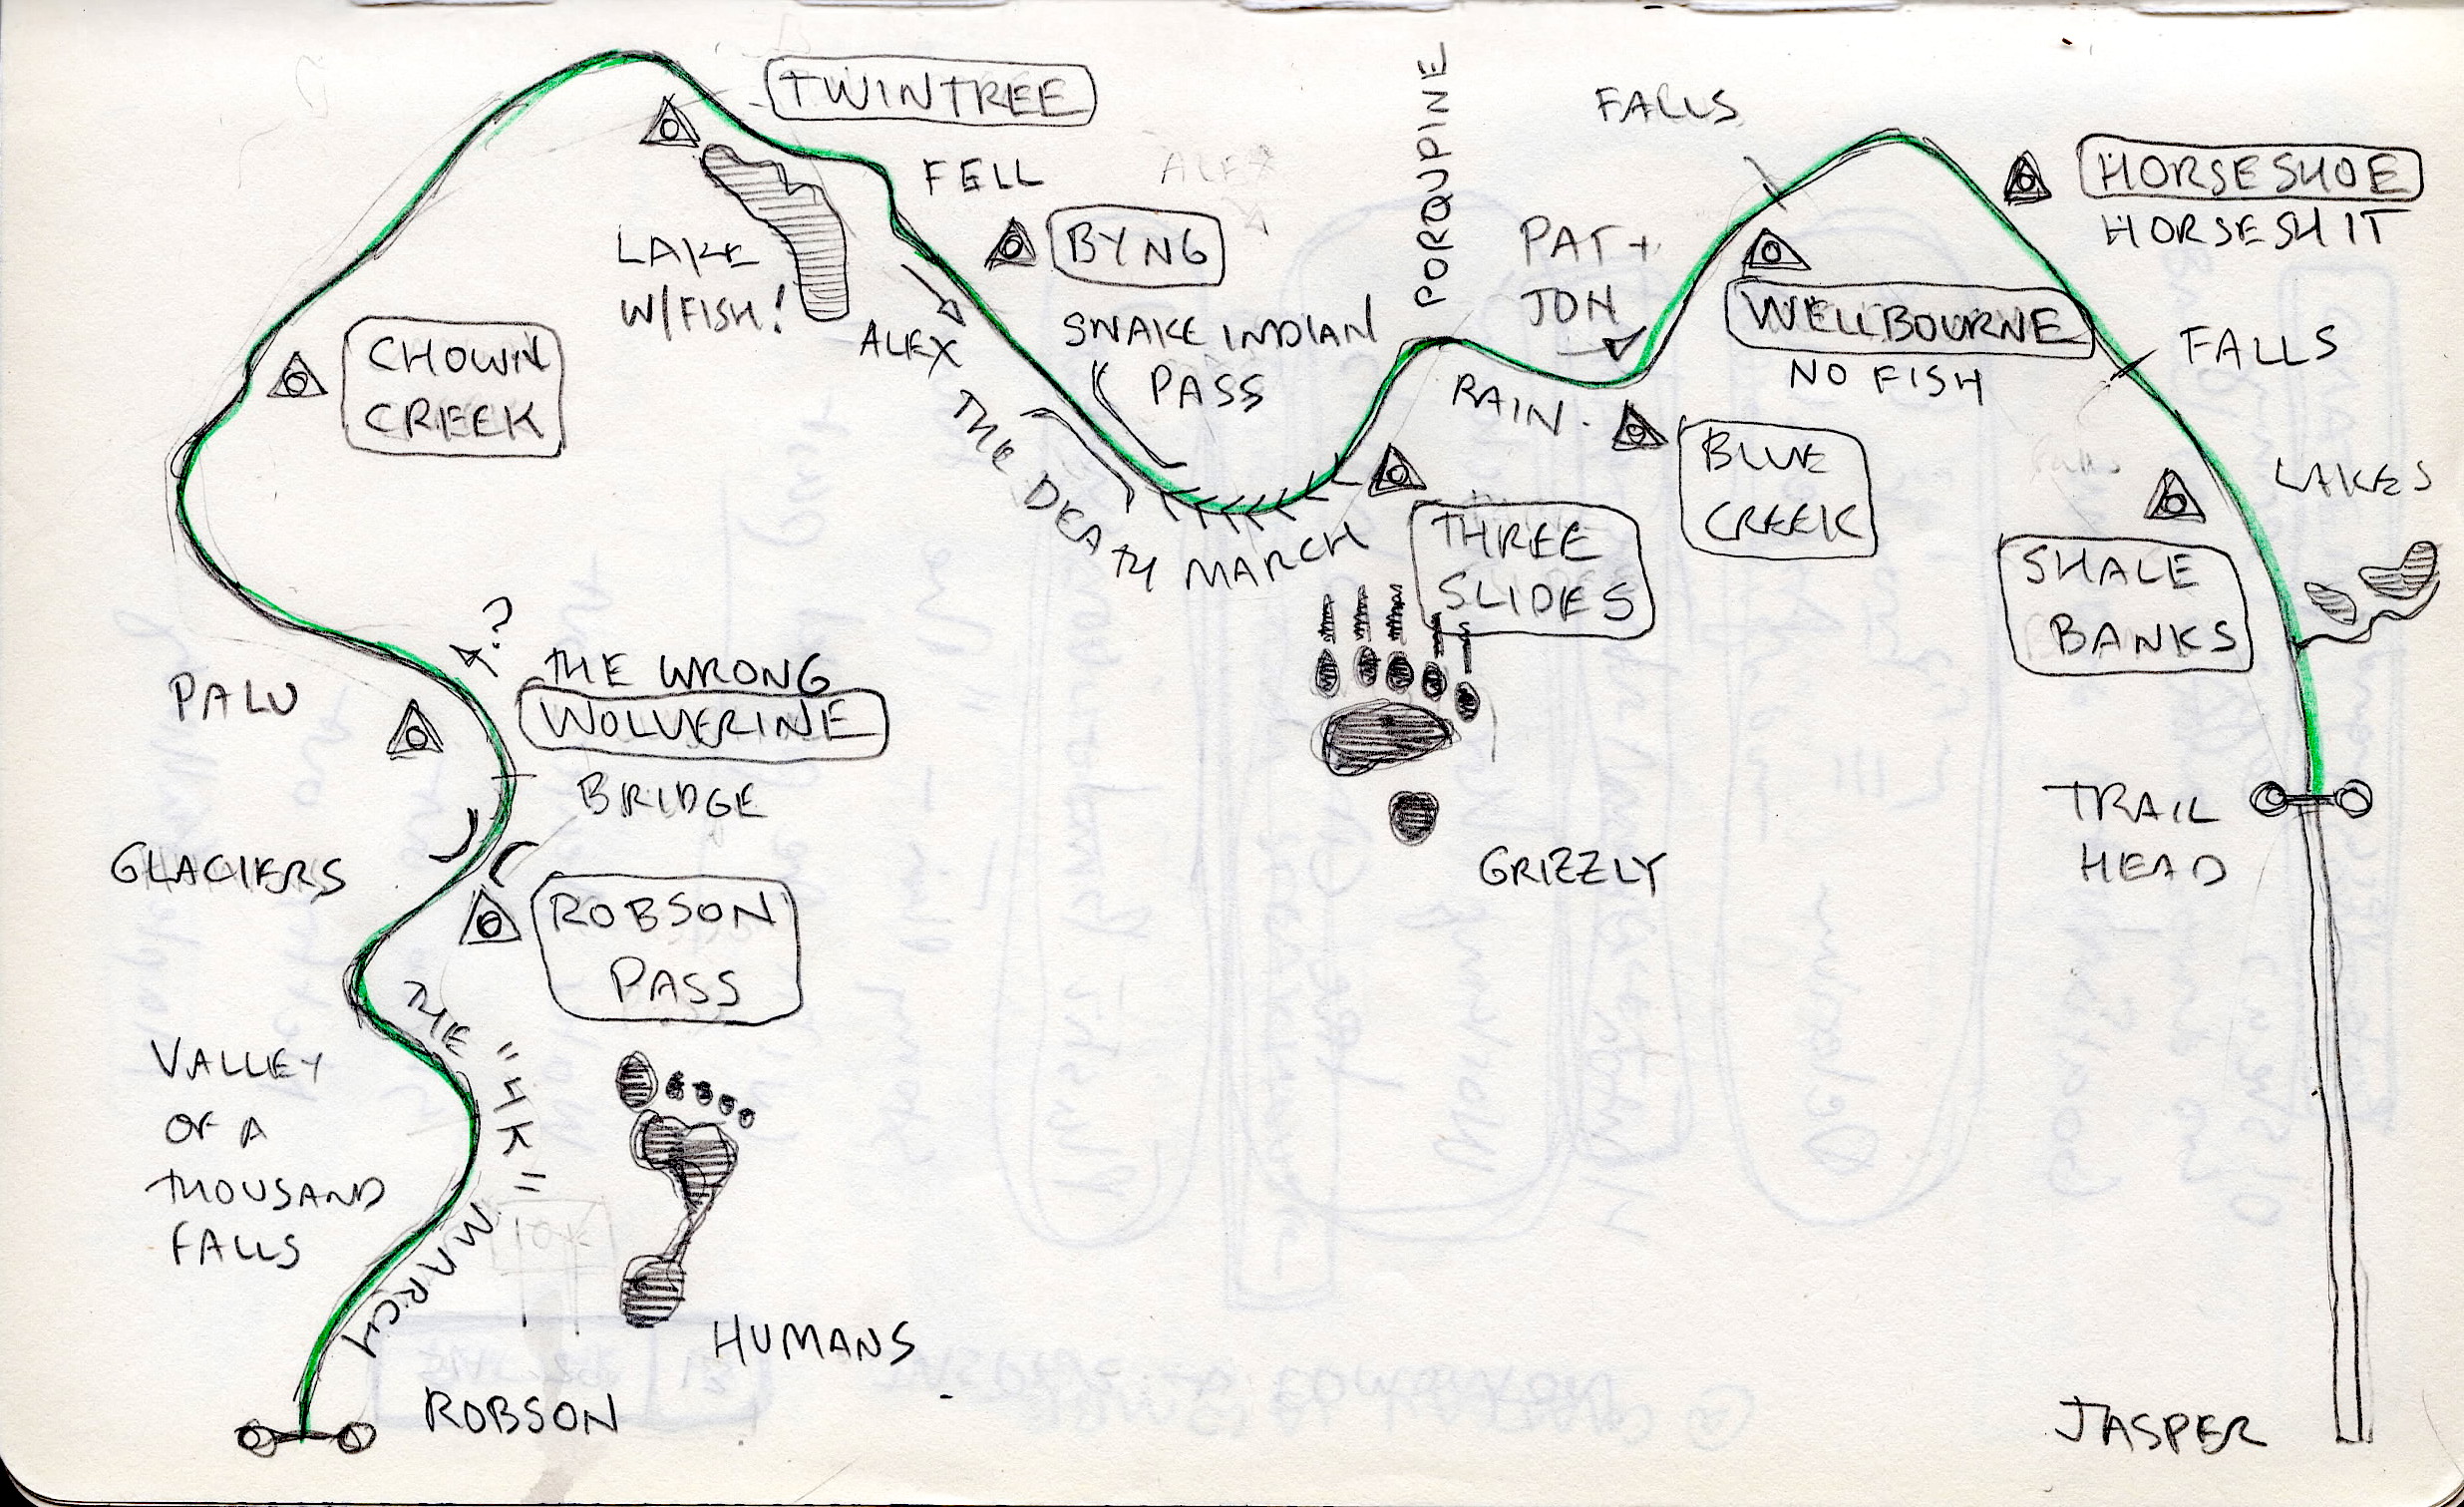 TWINTREE
FELL
BYNG
ALEX
LAKE
W/FISH!
ALEX
SNAKE INDIAN
PASS
THE DEATH MARCH
PORQUPINE
FALLS
PAT +
JON
RAIN.
HORSESHOE
HORSESHIT
WELLBOURNE
NO FISH
FALLS
LAKES
BLUE
CREEK
THREE
SLIDES
SHALE
BANKS
CHOWN
CREEK
?
THE WRONG
WOLVERINE
PALU
BRIDGE
GLACIERS
ROBSON
PASS
GRIZZLY
TRAIL
HEAD
THE "4K" MARCH
VALLEY
OF A
THOUSAND
FALLS
HUMANS
ROBSON
JASPER